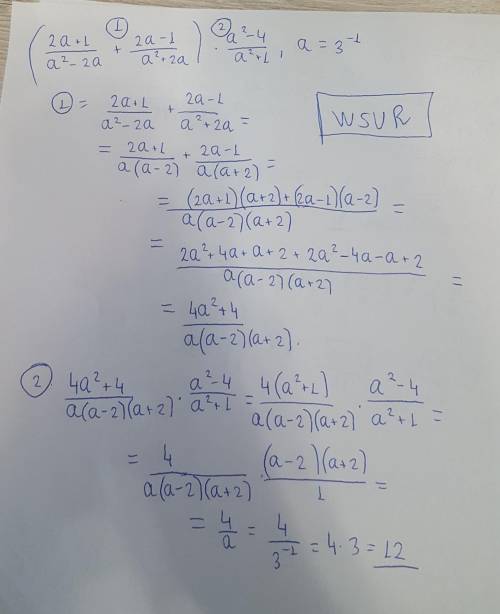 ( (2a+1)/(a²-2a) +① (2a-1)/(a²+2a) ) ·② (a²-4)/(a²+1), a = 3⁻¹
① = (2a+1)/(a²-2a) + (2a-1)/(a²+2a) =
WSUR
= (2a+1)/(a(a-2)) + (2a-1)/(a(a+2)) =
= ((2a+1)(a+2)+(2a-1)(a-2))/(a(a-2)(a+2)) =
= (2a²+4a+a+2+2a²-4a-a+2)/(a(a-2)(a+2)) =
= (4a²+4)/(a(a-2)(a+2)).
② (4a²+4)/(a(a-2)(a+2)) · (a²-4)/(a²+1) = (4(a²+1))/(a(a-2)(a+2)) · (a²-4)/(a²+1) =
= 4/(a(a-2)(a+2)) · ((a-2)(a+2))/1 =
= 4/a = 4/3⁻¹ = 4·3 = 12